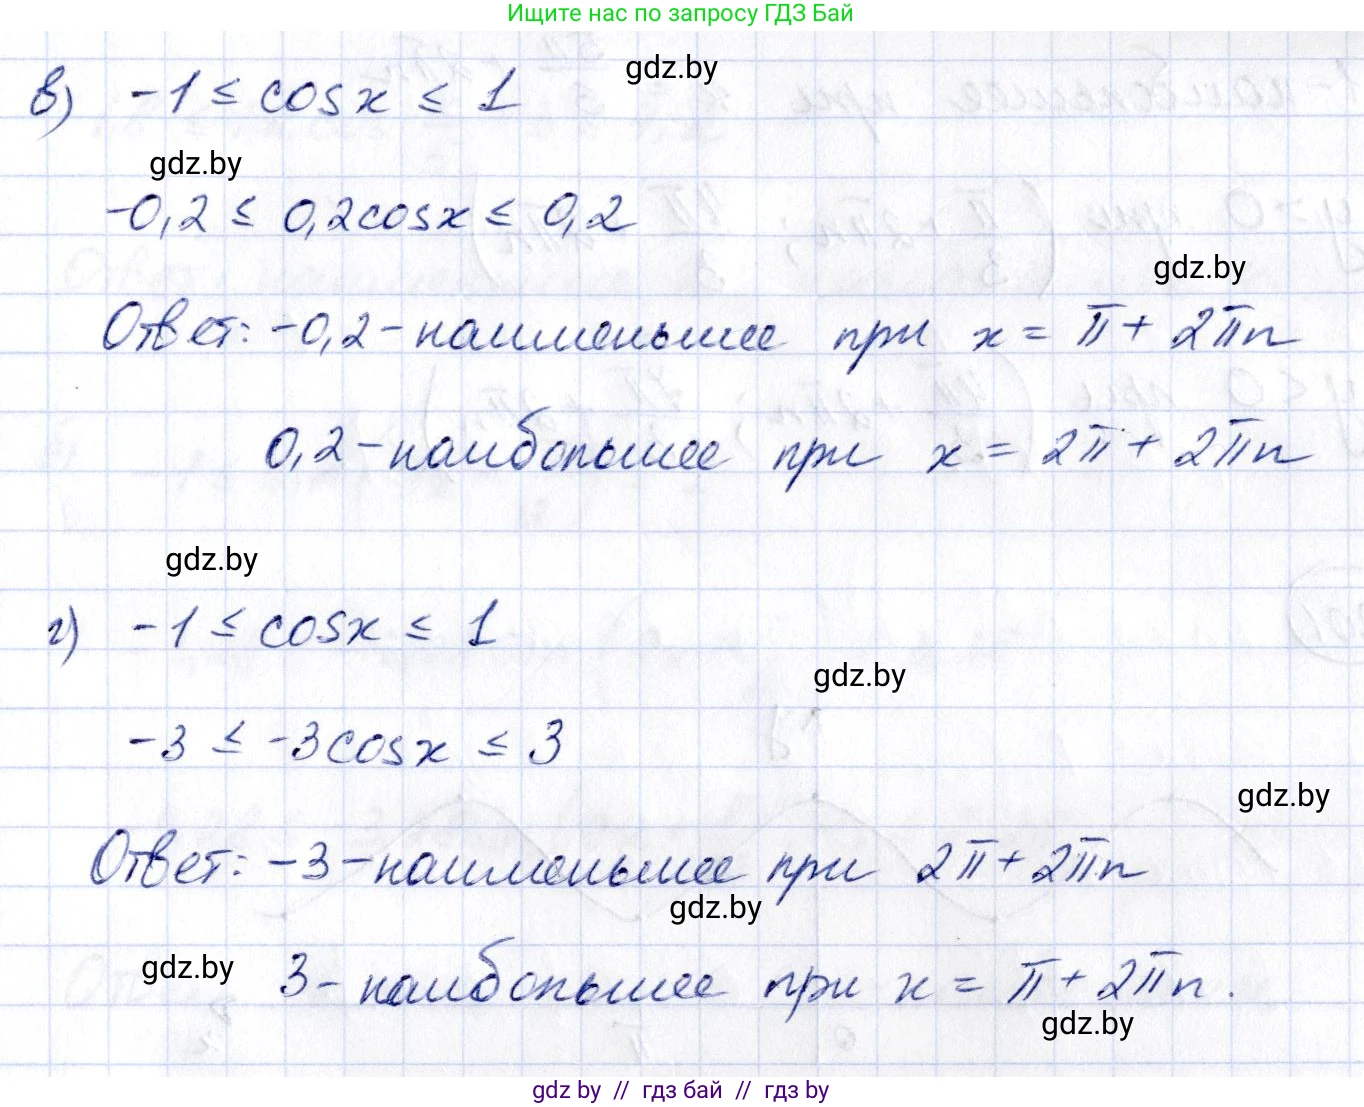 Ищите нас по запросу ГДЗ Бай
в) -1 ≤ cosx ≤ 1
gdz.by
gdz.by
-0,2 ≤ 0,2cosx ≤ 0,2
gdz.by
Ответ: -0,2 - наименьшее при x = π + 2πn
0,2 - наибольшее при x = 2π + 2πn
gdz.by
г) -1 ≤ cosx ≤ 1
gdz.by
-3 ≤ -3cosx ≤ 3
gdz.by
Ответ: -3 - наименьшее при 2π + 2πn
gdz.by
gdz.by
3 - наибольшее при x = π + 2πn.
gdz.by
gdz by // гдз бай // гдз by